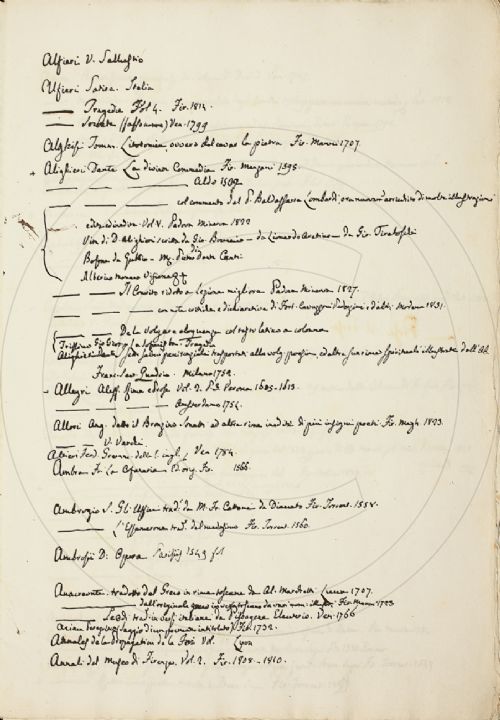 Alfieri V. Sallustio
Alfieri Satire. Italia
—— Tragedie Vol 4. Fir. 1814.
—— Sonetti Ven. 1799
Alghisi Tomas. Litotomia ovvero del cavar la pietra Fir. Manni 1707.
Alighieri Dante La divina Commedia Fir. Manzani 1595.
—— —— —— —— Aldo 1502
—— —— —— —— col comento del P. Baldassarre Lombardi ora nuovamente arricchito di molte illustrazioni
edite ed inedite Vol V. Padova Minerva 1822
Vita di D. Alighieri scritta da Gio. Boccaccio — da Lionardo Aretino — da Gio.
Bosone da Gubbio — di Dante Canti
Alberico monaco Visione
—— —— Il Convito ridotto a lezione migliore Padova Minerva 1827.
—— —— con note critiche e dichiarative di Fort. Cavazzoni Pederzini e d'altri. Modena 1831.
—— —— De la Volgare eloquenza col testo latino a colonna
Trissino Gio Giorgio La Sofonisba Tragedia
Alighieri Dante I sette salmi penitenziali trasportati alla volg. poesia, ed altre sue rime spirituali illustrate dall' Ab.
Franc. Sav. Quadrio. Milano 1752.
Allegri Aless. Rime e Prose Vol. 2. Verona 1605-1613.
—— —— —— —— Amsterdamo 1754.
Allori Ang. detto il Bronzino. Sonetti ed altre rime inedite di più insigni poeti. Fir. Magh. 1823.
—— —— V. Varchi
Altieri Ferd. Gramm. della l. ingl. Ven 1784.
Ambra F. La Cofanaria Ediz. orig. Fir. 1566.
Ambrogio S. Gli Uffizii trad. da M. Fr. Cattani da Diaceto Fir. Torrent. 1558.
—— —— L'Essamerone trad. dal medesimo Fir. Torrent. 1560
Ambrosii D. Opera 1549 fol
Anacreonte. tradotto dal Greco in rima toscana da Al. Marchetti Lucca 1707.
—— —— dall'originale greco in versi toscani da vari Fir. 1723
—— —— Le Odi trad. in versi italiani da Ven. 1766
1732.
Annales de la propagation de la Foi Vol. Lyon
Annali del Museo di Firenze. Vol. 2. Fir. 1808-1810.